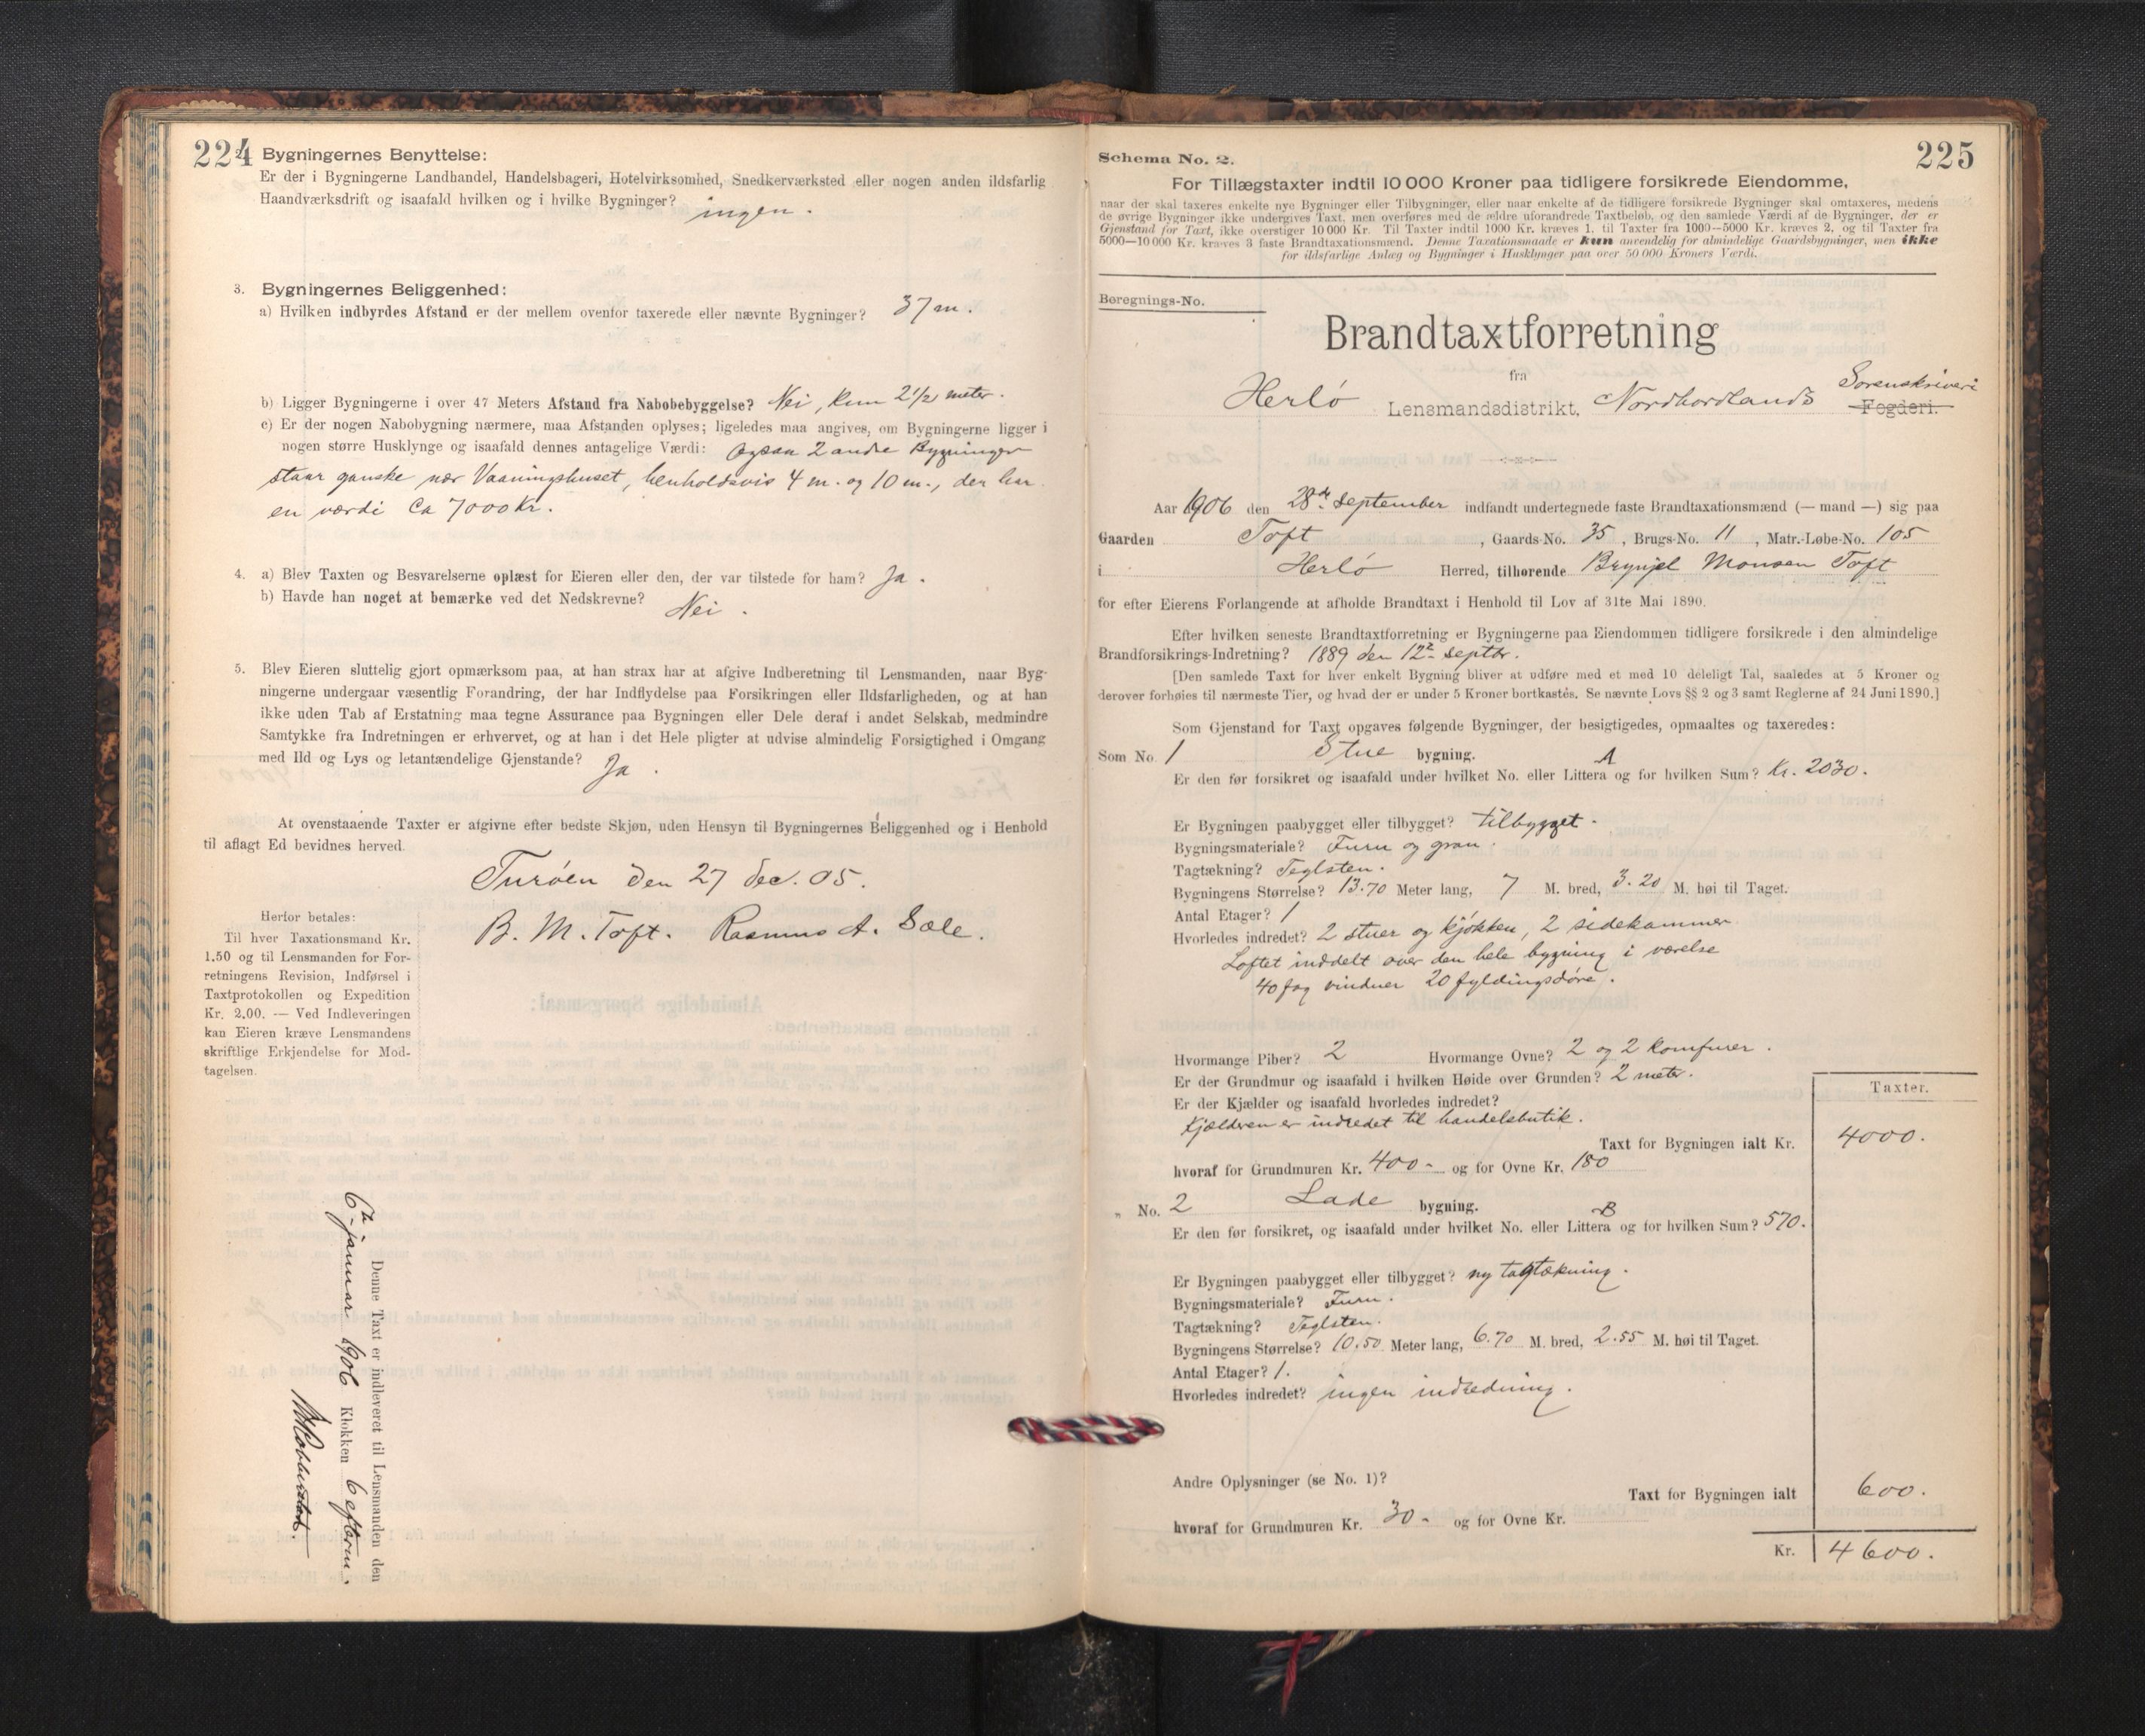 224 Bygningernes Benyttelse:
Er der i Bygningerne Landhandel, Handelsbageri, Hotelvirksomhed, Snedkerværksted eller nogen anden ildsfarlig
Haandværksdrift og isaafald hvilken og i hvilke Bygninger? ingen.
3. Bygningernes Beliggenhed:
a) Hvilken indbyrdes Afstand er der mellem ovenfor taxerede eller nævnte Bygninger? 37 m.
b) Ligger Bygningerne i over 47 Meters Afstand fra Nabobebyggelse? Nei, kun 2 1/2 meter.
c) Er der nogen Nabobygning nærmere, maa Afstanden oplyses; ligeledes maa angives, om Bygningerne ligger i
nogen større Husklynge og isaafald dennes antagelige Værdi: Ogsaa 2 andre Bygninger
staar ganske nær Vaaningshuset, henholdsvis 4 m. og 10 m., der har
en værdi Ca 7000 Kr.
4. a) Blev Taxten og Besvarelserne oplæst for Eieren eller den, der var tilstede for ham? Ja.
b) Havde han noget at bemærke ved det Nedskrevne? Nei.
5. Blev Eieren sluttelig gjort opmærksom paa, at han strax har at afgive Indberetning til Lensmanden, naar Byg-
ningerne undergaar væsentlig Forandring, der har Indflydelse paa Forsikringen eller Ildsfarligheden, og at han
ikke uden Tab af Erstatning maa tegne Assurance paa Bygningen eller Dele deraf i andet Selskab, medmindre
Samtykke fra Indretningen er erhvervet, og at han i det Hele pligter at udvise almindelig Forsigtighed i Omgang
med Ild og Lys og letantændelige Gjenstande? Ja.
At ovenstaaende Taxter er afgivne efter bedste Skjøn, uden Hensyn til Bygningernes Beliggenhed og i Henhold
til aflagt Ed bevidnes herved.
Turöen den 27 dec. 05.
B. M. Toft. Rasmus A. Sæle.
Herfor betales:
Til hver Taxationsmand Kr.
1.50 og til Lensmanden for For-
retningens Revision, Indførsel i
Taxtprotokollen og Expedition
Kr. 2.00. — Ved Indleveringen
kan Eieren kræve Lensmandens
skriftlige Erkjendelse for Mod-
tagelsen.
Denne Taxt er indleveret til Lensmanden den
6te januar 1906 Klokken 6 efterm.
225
Schema No. 2.
For Tillægstaxter indtil 10 000 Kroner paa tidligere forsikrede Eiendomme,
naar der skal taxeres enkelte nye Bygninger eller Tilbygninger, eller naar enkelte af de tidligere forsikrede Bygninger skal omtaxeres, medens
de øvrige Bygninger ikke undergives Taxt, men overføres med de ældre uforandrede Taxtbeløb, og den samlede Værdi af de Bygninger, der er
Gjenstand for Taxt, ikke overstiger 10 000 Kr. Til Taxter indtil 1000 Kr. kræves 1, til Taxter fra 1000—5000 Kr. kræves 2, og til Taxter fra
5000—10 000 Kr. kræves 3 faste Brandtaxationsmænd. Denne Taxationsmaade er kun anvendelig for almindelige Gaardsbygninger, men ikke
for ildsfarlige Anlæg og Bygninger i Husklynger paa over 50 000 Kroners Værdi.
Beregnings-No.
Brandtaxtforretning
fra
Herlö Lensmandsdistrikt, Nordhordlands Sorenskriveri Fogderi.
Aar 1906 den 28de September indfandt undertegnede faste Brandtaxationsmænd (— mand —) sig paa
Gaarden Toft, Gaards-No. 35, Brugs-No. 11, Matr.-Løbe-No. 105
i Herlö Herred, tilhørende Brynjel Monsen Toft
for efter Eierens Forlangende at afholde Brandtaxt i Henhold til Lov af 31te Mai 1890.
Efter hvilken seneste Brandtaxtforretning er Bygningerne paa Eiendommen tidligere forsikrede i den almindelige
Brandforsikrings-Indretning? 1889 den 12te Septbr.
[Den samlede Taxt for hver enkelt Bygning bliver at udføre med et med 10 deleligt Tal, saaledes at 5 Kroner og
derover forhøies til nærmeste Tier, og hvad der er under 5 Kroner bortkastes. Se nævnte Lovs §§ 2 og 3 samt Reglerne af 24 Juni 1890.]
Som Gjenstand for Taxt opgaves følgende Bygninger, der besigtigedes, opmaaltes og taxeredes:
Som No. 1 Stue bygning.
Er den før forsikret og isaafald under hvilket No. eller Littera A og for hvilken Sum? Kr. 2030.
Er Bygningen paabygget eller tilbygget? tilbygget.
Bygningsmateriale? Furu og gran.
Tagtækning? Teglsten.
Bygningens Størrelse? 13.70 Meter lang, 7 M. bred, 3.20 M. høi til Taget.
Antal Etager? 1
Hvorledes indredet? 2 stuer og kjøkken, 2 sidekammer
Loftet inddelt over den hele bygning i værelse
40 fag vinduer 20 fyldingsdøre.
Hvormange Piber? 2 Hvormange Ovne? 2 og 2 komfurer.
Er der Grundmur og isaafald i hvilken Høide over Grunden? 2 meter.
Er der Kjælder og isaafald hvorledes indredet?
Kjælderen er indredet til handelsbutik.
Taxter.
Taxt for Bygningen ialt Kr. 4000.
hvoraf for Grundmuren Kr. 400 - og for Ovne Kr. 180
" No. 2 Lade bygning.
Er den før forsikret, og isaafald under hvilket No. eller Littera B og for hvilken Sum? 570.
Er Bygningen paabygget eller tilbygget? ny tagtækning.
Bygningsmateriale? Furu.
Tagtækning? Teglsten.
Bygningens Størrelse? 10.50 Meter lang, 6.70 M. bred, 2.55 M. høi til Taget.
Antal Etager? 1.
Hvorledes indredet? ingen indredning.
Andre Oplysninger (se No. 1)?
Taxt for Bygningen ialt 600.
hvoraf for Grundmuren Kr. 30 - og for Ovne Kr.
Kr. 4600.